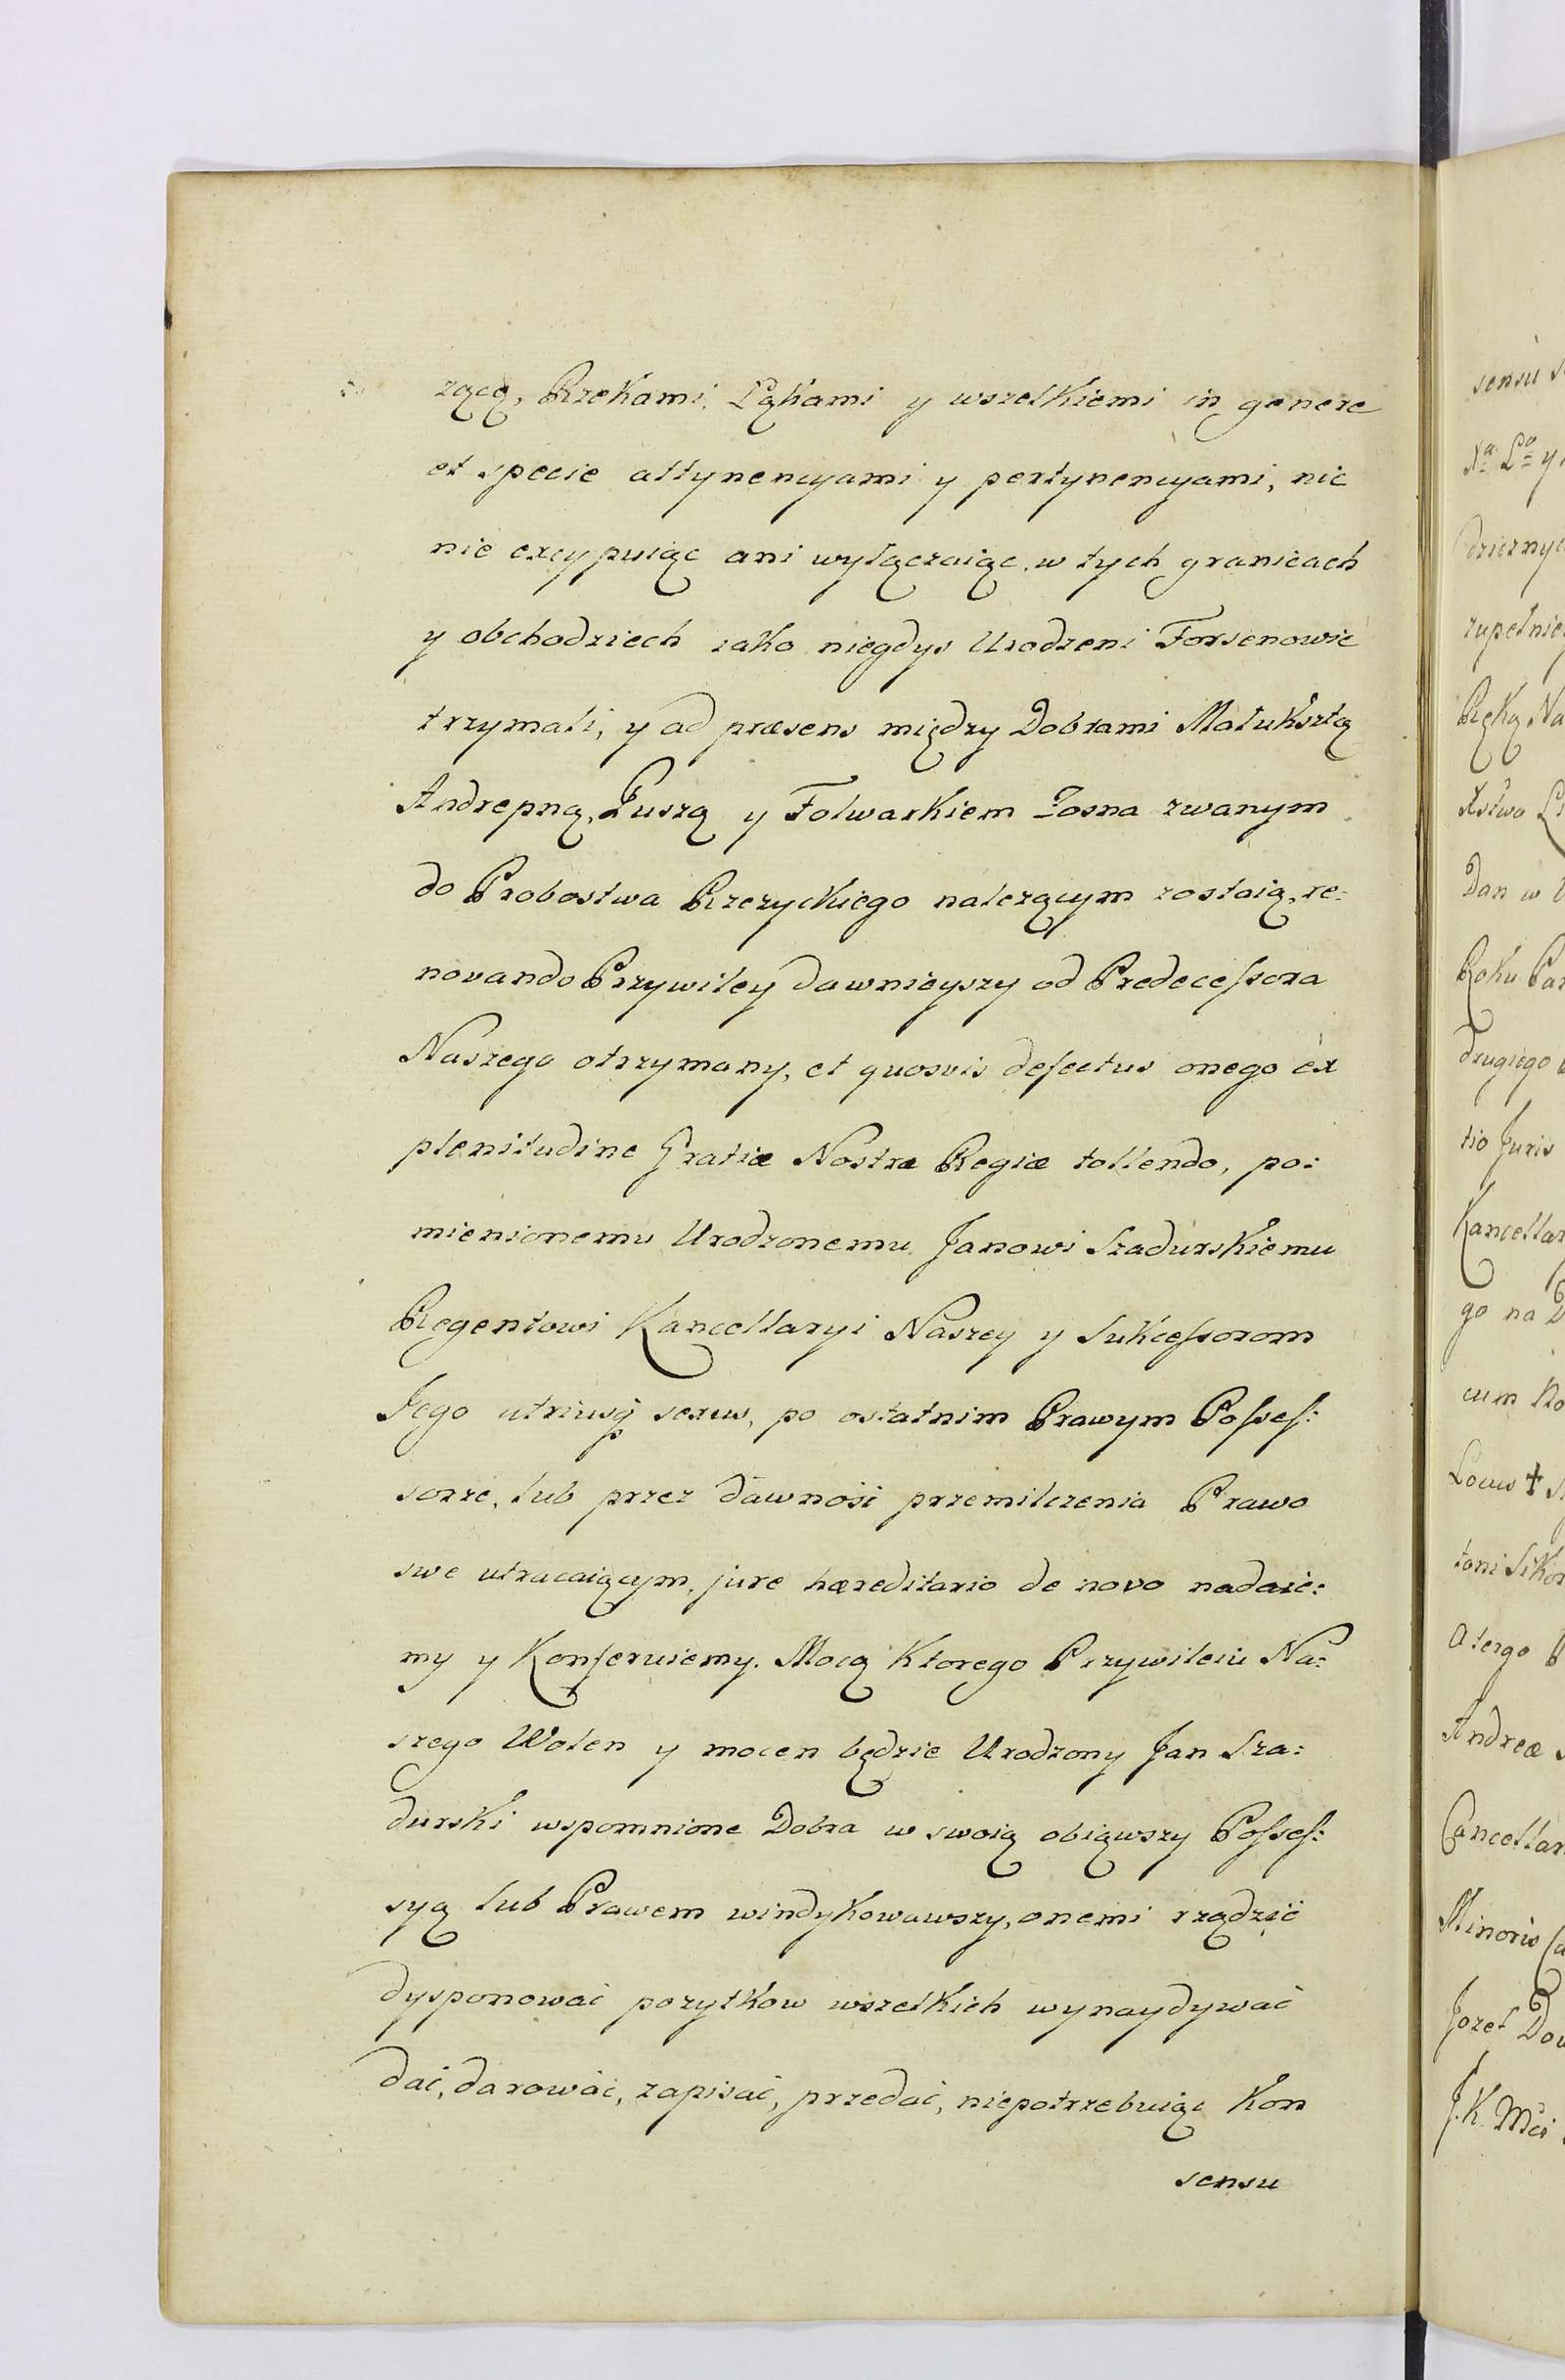 rzącą, Rzekami, Łąkami y wszelkiemi in genere
et specie attynencyami y pertynencyami, nic
nie excypuiąc ani wyłączaiąc, w tych granicach
y obchodziech iako niegdys Urodzeni Forsenowie
trzymali, y ad præsens między Dobrami Małuksztą
Andrepną, Puszą y Folwarkiem Zosna zwanym
do Probostwa Rzezyckiego nalezącym zostaią, re:
novando Przywiley dawnieyszy od Predecessora
Naszego otrzymany, et quosvis defectus onego ex
plenitudine Gratiæ Nostræ Regiæ tollendo, po:
mienionemu Urodzonemu Janowi Szadurskiemu
Regentowi Kancellaryi Naszey y Sukcessorom
Jego utriusq̃ sexus, po ostatnim Prawym Posses:
sorze, lub przez dawność przemilczenia Prawo
swe utracaiącym, jure hæreditario de novo nadaie:
my y Konferuiemy. Mocą Ktorego Przywileiu Na:
szego Wolen y mocen będzie Urodzony Jan Sza:
durski wspomnione Dobra w swoią obiąwszy Posses:
syą lub Prawem windykowawszy, onemi rządzić
dysponować pozytkow wszelkich wynaydywać
dać, darować, zapisać, przedać, niepotrzebuiąc Kon
sensu
sensu
Xa Lo y
dzicznych
zupełnie
Ręką Na
Xstwa
Dan w
Roku
drugiego
tio Juris
Kancellar
go na
cum
Locus +
toni Sikor
A tergo
Andreæ
Cancellar
Minoris
Jozef Dow
J. K. Mći